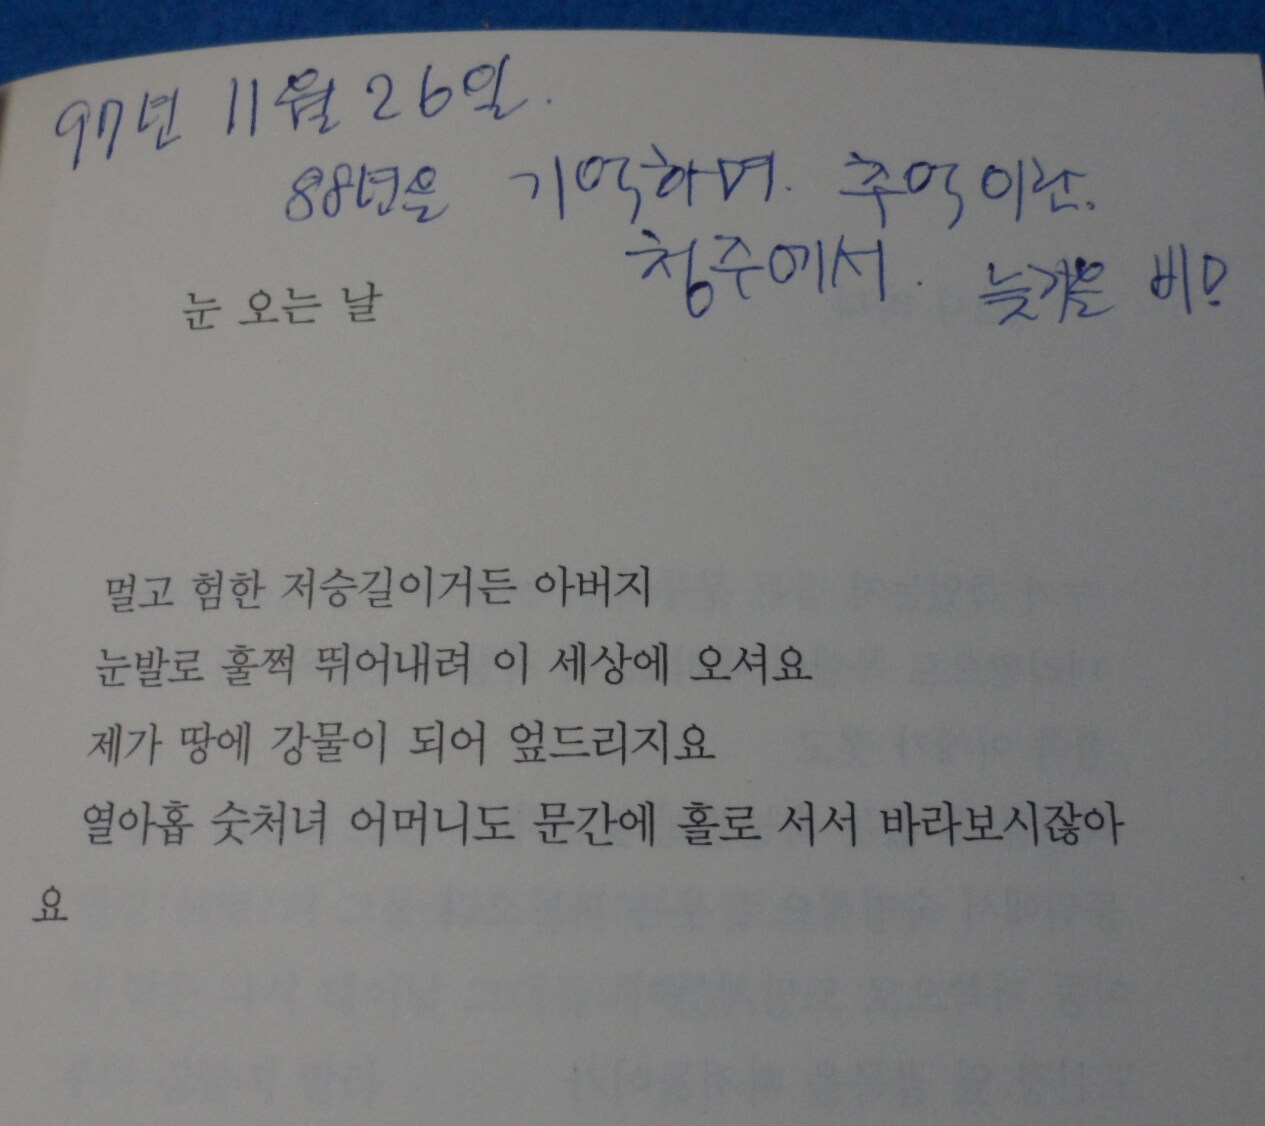 97년 11월 26일.
88년을 기억하며. 추억이란.
청주에서. 늦가을 비!
눈 오는 날
멀고 험한 저승길이거든 아버지
눈발로 훌쩍 뛰어내려 이 세상에 오셔요
제가 땅에 강물이 되어 엎드리지요
열아홉 숫처녀 어머니도 문간에 홀로 서서 바라보시잖아
요